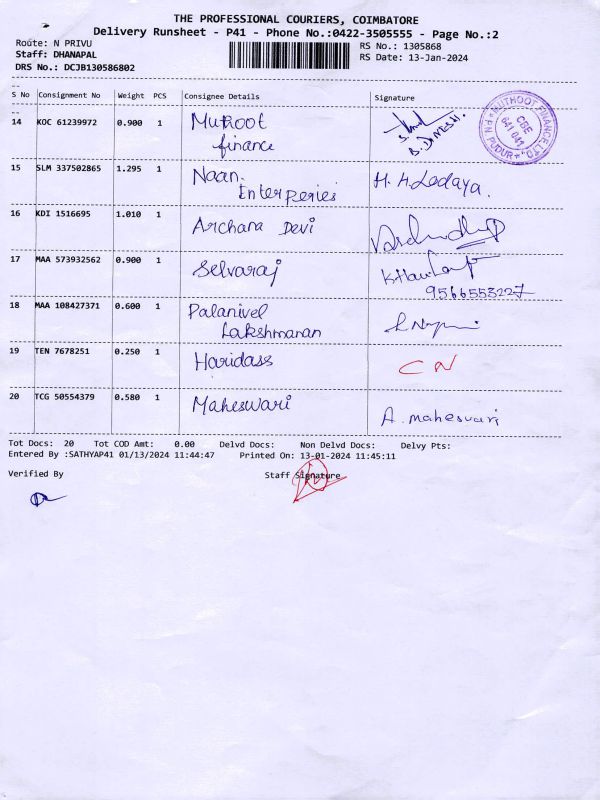 THE PROFESSIONAL COURIERS, COIMBATORE
Delivery Runsheet - P41 - Phone No.:0422-3505555 - Page No.:2
Route: N PRIVU
RS No.: 1305868
Staff: DHANAPAL
RS Date: 13-Jan-2024
DRS No.: DCJB130586802
S No Consignment No Weight PCS Consignee Details Signature
14 KOC 61239972 0.900 1 Muthoot
finance
B. DINESH.
MUTHOOT FINANCE LTD.
CBE
641 041
P.N. PUDUR
15 SLM 337502865 1.295 1 Naan.
Enterperies
H. H. Ledaya.
16 KDI 1516695 1.010 1 Archana Devi
17 MAA 573932562 0.900 1 Selvaraj
9566553227
18 MAA 108427371 0.600 1 Palanivel
Lakshmanan
19 TEN 7678251 0.250 1 Haridass CN
20 TCG 50554379 0.580 1 Maheswari A. maheswari
Tot Docs: 20 Tot COD Amt: 0.00 Delvd Docs: Non Delvd Docs: Delvy Pts:
Entered By :SATHYAP41 01/13/2024 11:44:47 Printed On: 13-01-2024 11:45:11
Verified By Staff Signature